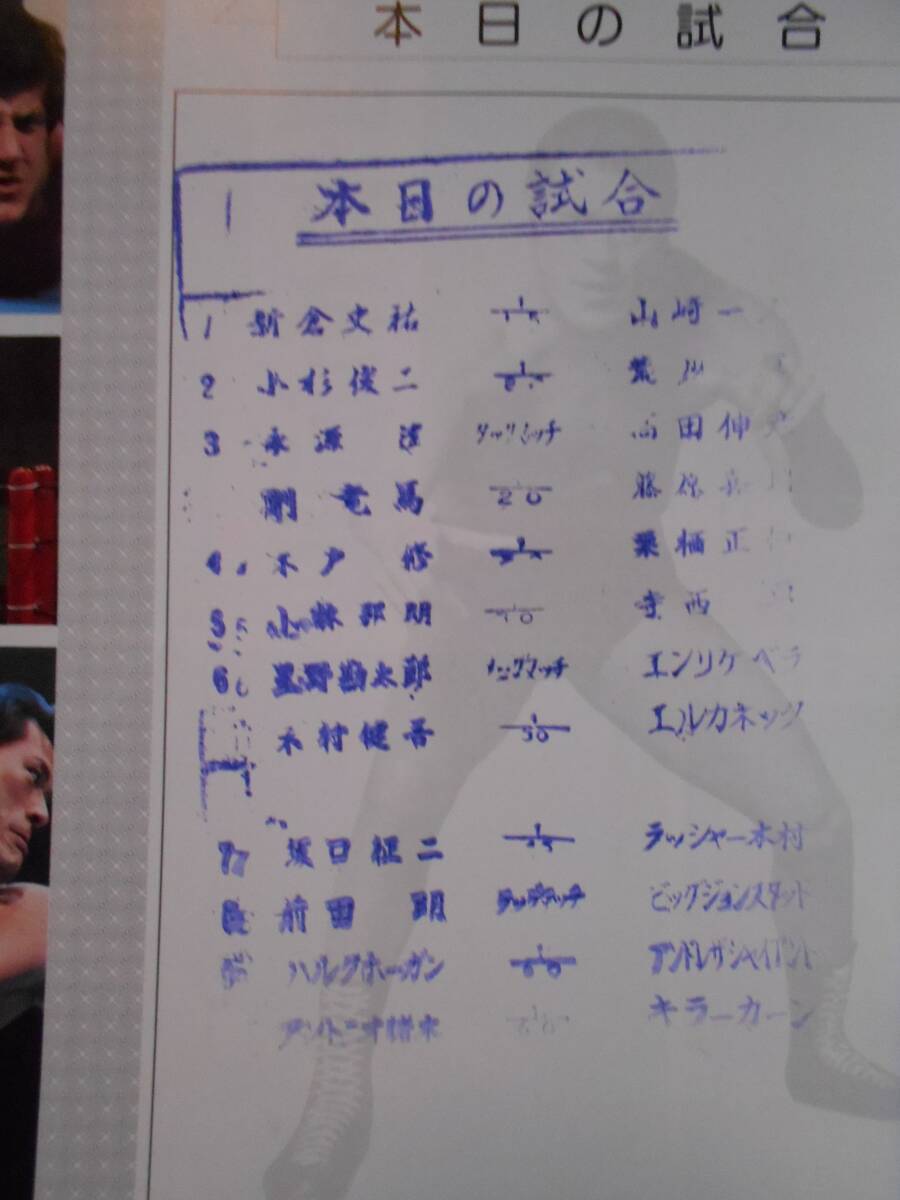 本日の試合
1 本日の試合
1 新倉史祐 1/15 山崎一
2 小杉俊二 荒川
3 永源遙 タッグマッチ 高田伸
剛竜馬 1/20 藤原喜
4 木戸修 栗栖正
5 小林邦明 寺西
6 星野勘太郎 タッグマッチ エンリケベラ
木村健吾 1/30 エルカネック
7 坂口征二 1/45 ラッシャー木村
8 前田明 タッグマッチ ビッグジョンスタッド
ハルクホーガン 1/60 アンドレザジャイアント
アントニオ猪木 キラーカーン